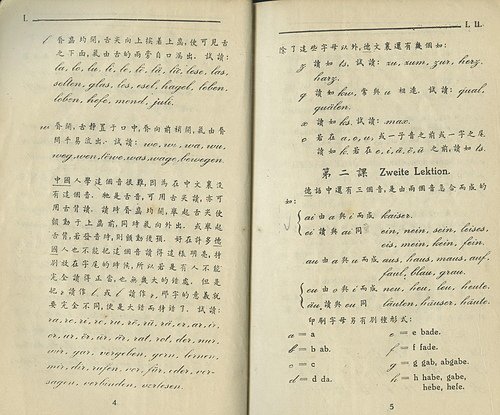 I.
l 唇微開,舌尖向上接着上齒,使可見舌
之下面,氣由舌的兩旁自口漏出. 試讀:
la, lo, lu, li, le, lö, lä, lü, lese, las,
selten, glas, los, esel, hagel, leben,
loben, hefe, mond, juli.
w 唇開,舌靜置于口中,唇向前稍開,氣由唇
間平易流出. 試讀: we, wo, wa, wu,
weg, wen, löwe, was, wage, bewegen.
中國人學這個音很難,因為在中文裏沒
有這個音. 牠是舌音,可用舌尖讀,亦可
用舌背讀. 讀時唇
顫動于上齒前,同時氣向外出. 或舉起
舌背,若發音時,則顫動後頭. 好在許多德
國人也不能把這個音讀得這樣明亮,特
別放在字尾的時候,所以若是有人不能
完全讀得正當,也無幾大的錯處. 但是
把 r 讀作 l, 或 l 讀作 r, 那字的意義就
要完全不同,使是大錯而特錯了. 試讀:
ra, re, ri, ro, ru, rö, rü, rä, er, ar, ir,
or, ur, är, ür, ör, rat, rot, der, nur,
wir, gar, vergeben, gern, lernen,
mir, dir, rufen, vor, für, oder, ver-
sagen, verbinden, verlesen.
4
I. II.
除了這些字母以外,德文裏還有幾個如:
z 讀如 ts. 試讀: zu, zum, zur, herz,
harz.
q 讀如 kw, 常與 u 相連. 試讀: qual,
quälen.
x 讀如 ks. 試讀: max.
c 若在 a, o, u, 或一子音之前或一字之尾
讀如 k. 若在 e, i, ä, ö, ü 之前,讀如 ts.
第二課 Zweite Lektion.
德語中還有三個音,是由兩個音息合而成的
如:
ai 由 a 與 i 而成 kaiser.
ei 讀與 ai 同 ein, nein, sein, leises,
eis, mein, kein, fein.
au 由 a 與 u 而成 aus, haus, maus, auf,
faul, blau, grau.
eu 由 o 與 i 而成 neu, heu, leu, heute.
äu 讀與 eu 同 läuten, häuser, häute.
印刷字母另有別種形式:
a = a
b = b ab.
c = c
d = d da.
e = e bade.
f = f fade.
g = g gab, abgabe.
h = h habe, gabe,
hebe, hefe.
5